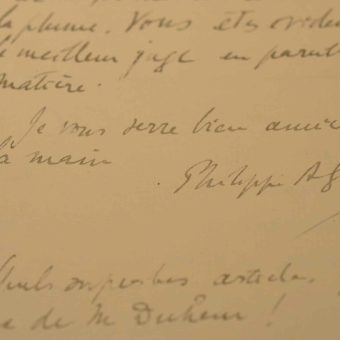 la plume. Vous êtes évidem
le meilleur juge en pareille
matière.
Je vous serre bien amica
la main
Philippe A
Quels superbes articles
de M Duhem !